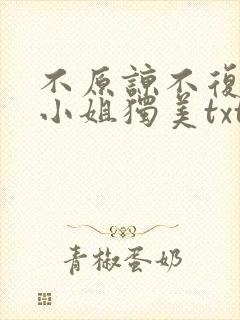 不原諒不復
小姐獨美txt
青椒蛋奶